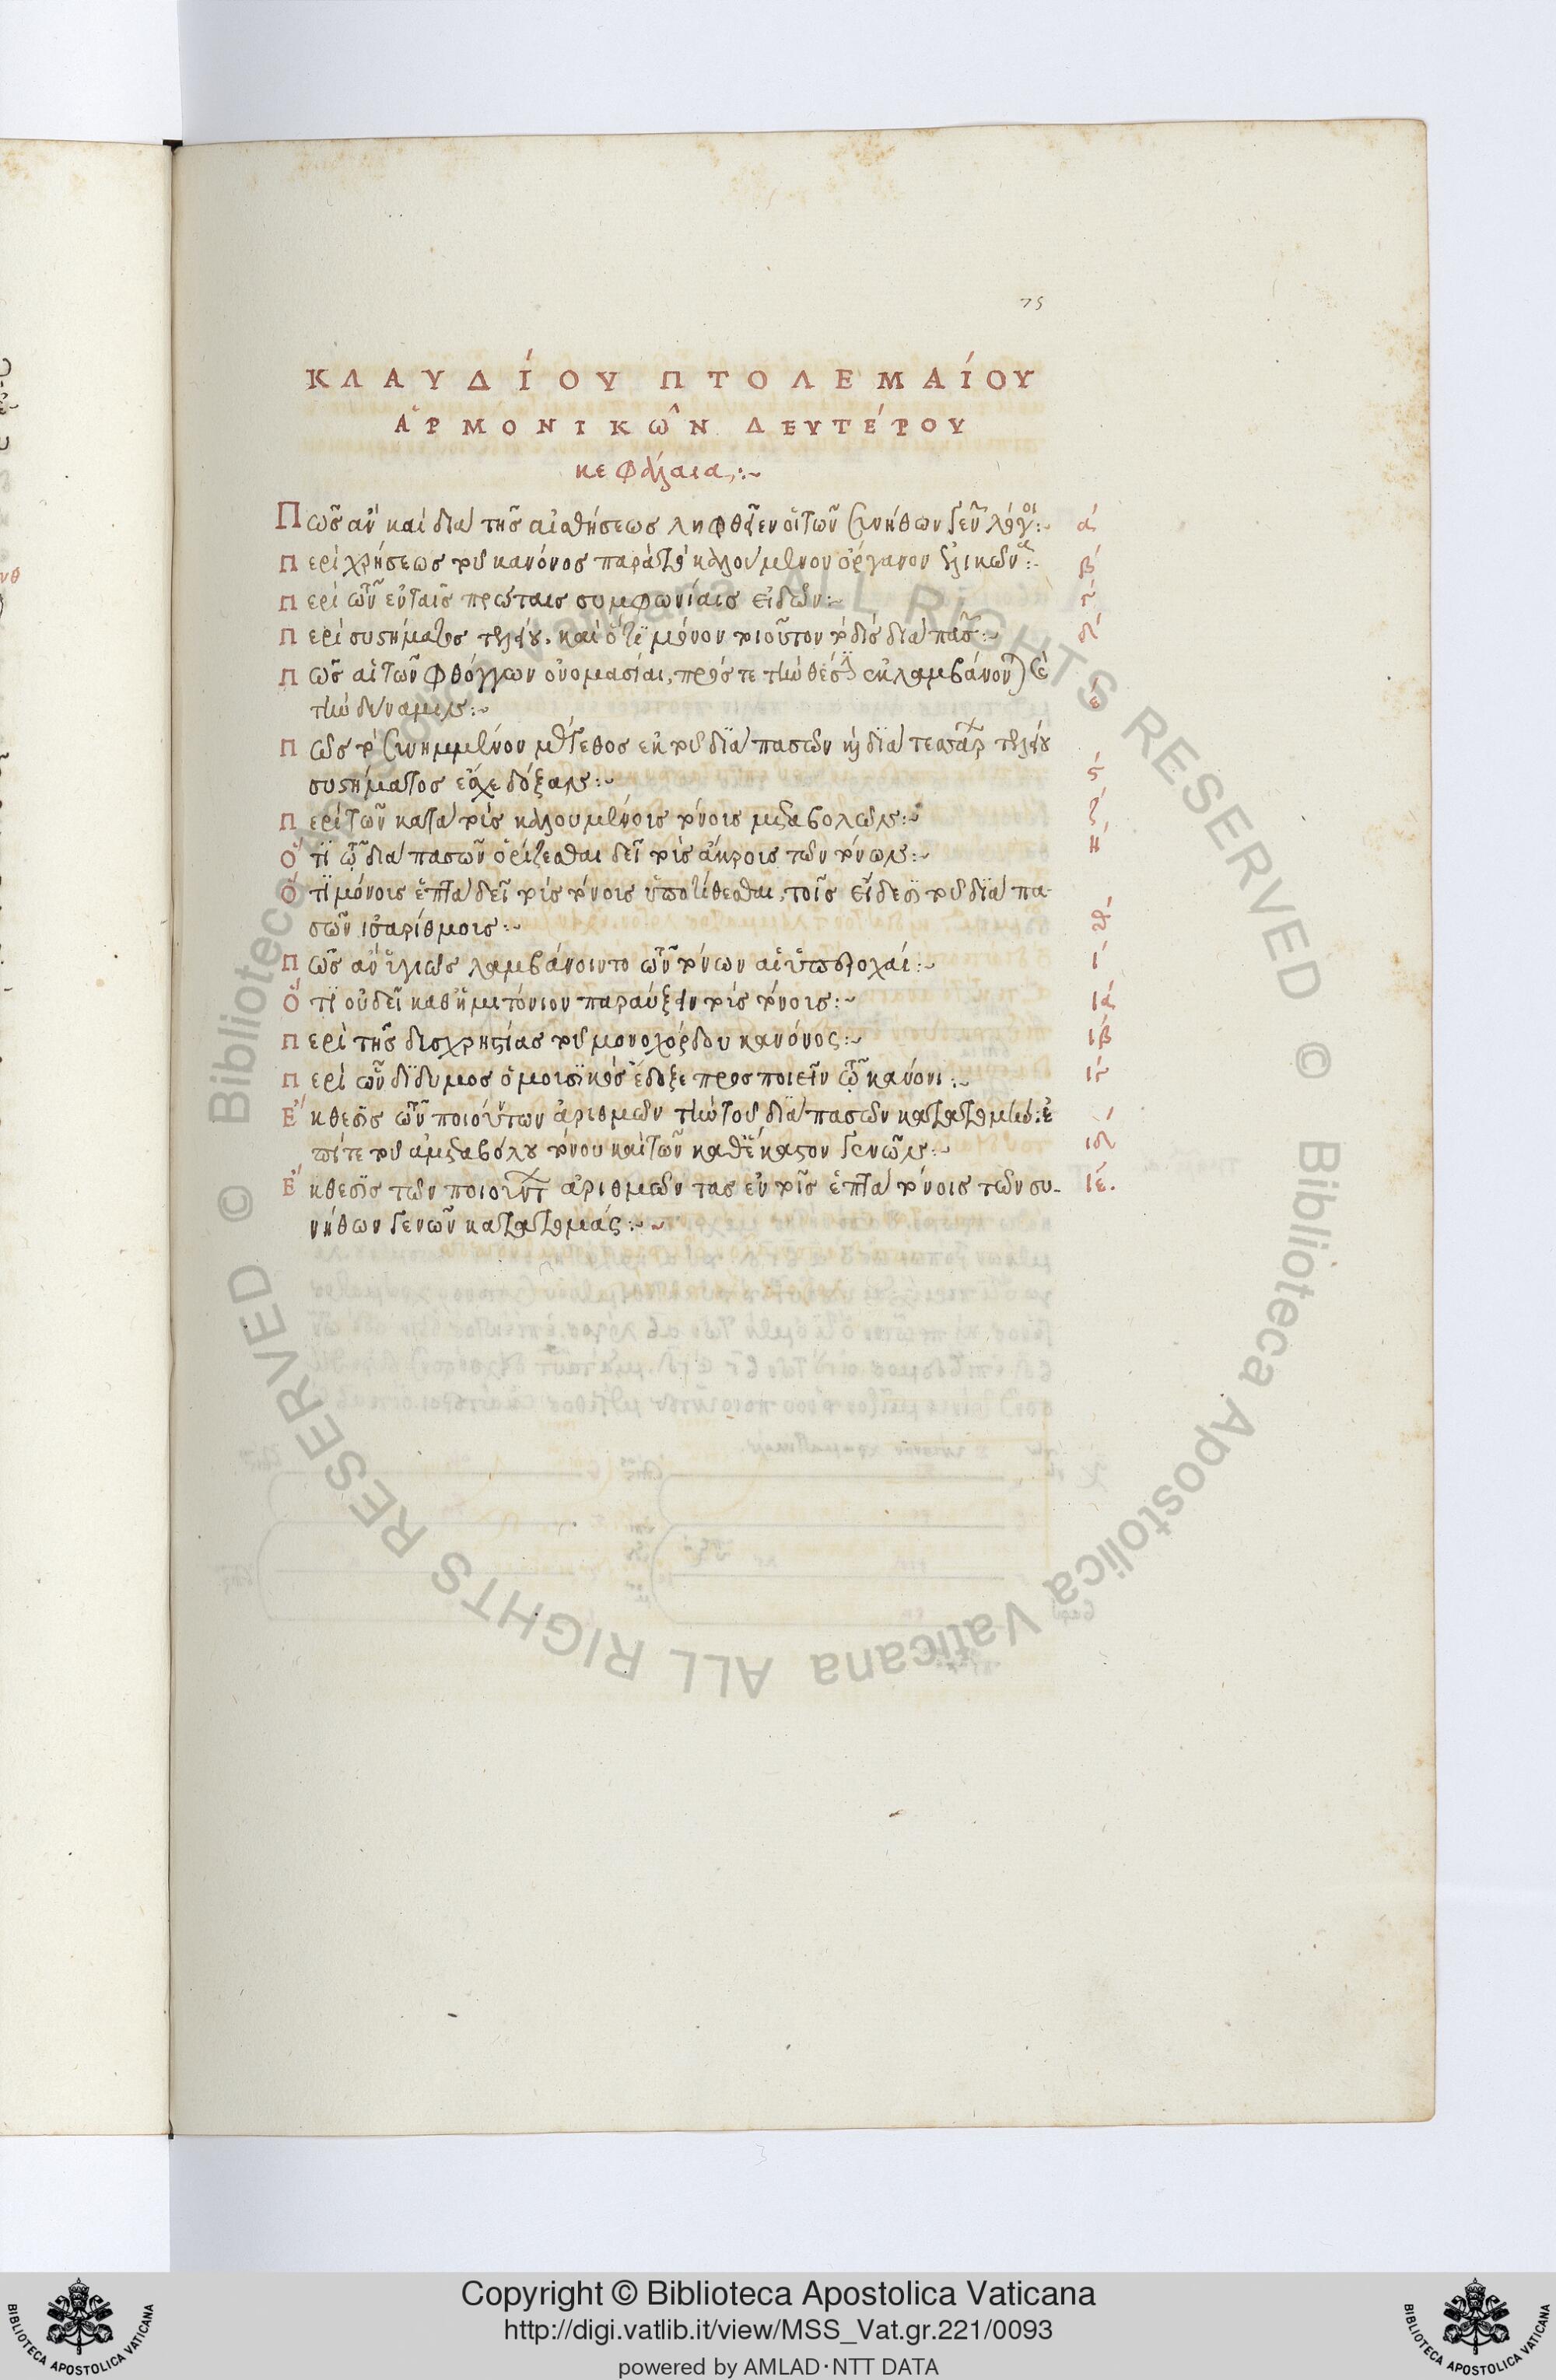 75
ΚΛΑΥΔΊΟΥ ΠΤΟΛΕΜΑΊΟΥ
ἉΡΜΟΝΙΚῶΝ ΔΕΥΤΈΡΟΥ
κεφάλαια:~
Πῶς ἂν καὶ διὰ τῆς αἰσθήσεως ληφθεῖεν οἱ τῶν συνήθων γενῶν λόγοι:~ α´
Περὶ χρήσεως τοῦ κανόνος παρὰ τὸ καλούμενον ὄργανον ἑλικῶνα:~ β´
Περὶ τῶν ἐν ταῖς πρώταις συμφωνίαις εἰδῶν:~ γ´
Περὶ συστήματος τελείου. καὶ ὅτι μόνον τοιοῦτον τὸ δὶς διὰ πασῶν:~ δ´
Πῶς αἱ τῶν φθόγγων ὀνομασίαι, πρός τε τὴν θέσιν ἐκλαμβάνονται καὶ
τὴν δύναμιν:~ ε´
Πῶς τὸ συνημμένον μέγεθος ἐκ τοῦ διὰ πασῶν καὶ διὰ τεσσάρων τελείου
συστήματος ἔσχε δόξαν:~ ς´
Περὶ τῶν κατὰ τοὺς καλουμένους τόνους μεταβολῶν:~ ζ´
Ὅτι τῷ διὰ πασῶν ὁρίζεσθαι δεῖ τοὺς ἄκρους τῶν τόνων:~ η´
Ὅτι μόνους ἑπτὰ δεῖ τοὺς τόνους ὑποτίθεσθαι, τοῖς εἴδεσι τοῦ διὰ πα-
σῶν ἰσαρίθμους:~ θ´
Πῶς ἂν ὑγιῶς λαμβάνοιντο τῶν τόνων αἱ ὑπεροχαί:~ ι´
Ὅτι οὐ δεῖ καθ' ἡμιτόνιον παραύξειν τοὺς τόνους:~ ια´
Περὶ τῆς δυσχρηστίας τοῦ μονοχόρδου κανόνος:~ ιβ´
Περὶ ὧν δίδυμος ὁ μουσικὸς ἔδοξε προσποιεῖν τῷ κανόνι:~ ιγ´
Ἔκθεσις τῶν ποιούντων ἀριθμῶν τὴν τοῦ διὰ πασῶν κατατομὴν. ἐ
πί τε τοῦ ἀμεταβόλου τόνου καὶ τῶν καθ' ἕκαστον γενῶν:~ ιδ´
Ἔκθεσις τῶν ποιούντων ἀριθμῶν τὰς ἐν τοῖς ἑπτὰ τόνοις τῶν συ-
νήθων γενῶν κατατομάς:~ ιε´.
© Biblioteca Apostolica Vaticana ALL RIGHTS RESERVED © Biblioteca Apostolica Vaticana ALL RIGHTS RESERVED
BIBLIOTECA APOSTOLICA VATICANA
Copyright © Biblioteca Apostolica Vaticana
http://digi.vatlib.it/view/MSS_Vat.gr.221/0093
powered by AMLAD·NTT DATA
BIBLIOTECA APOSTOLICA VATICANA